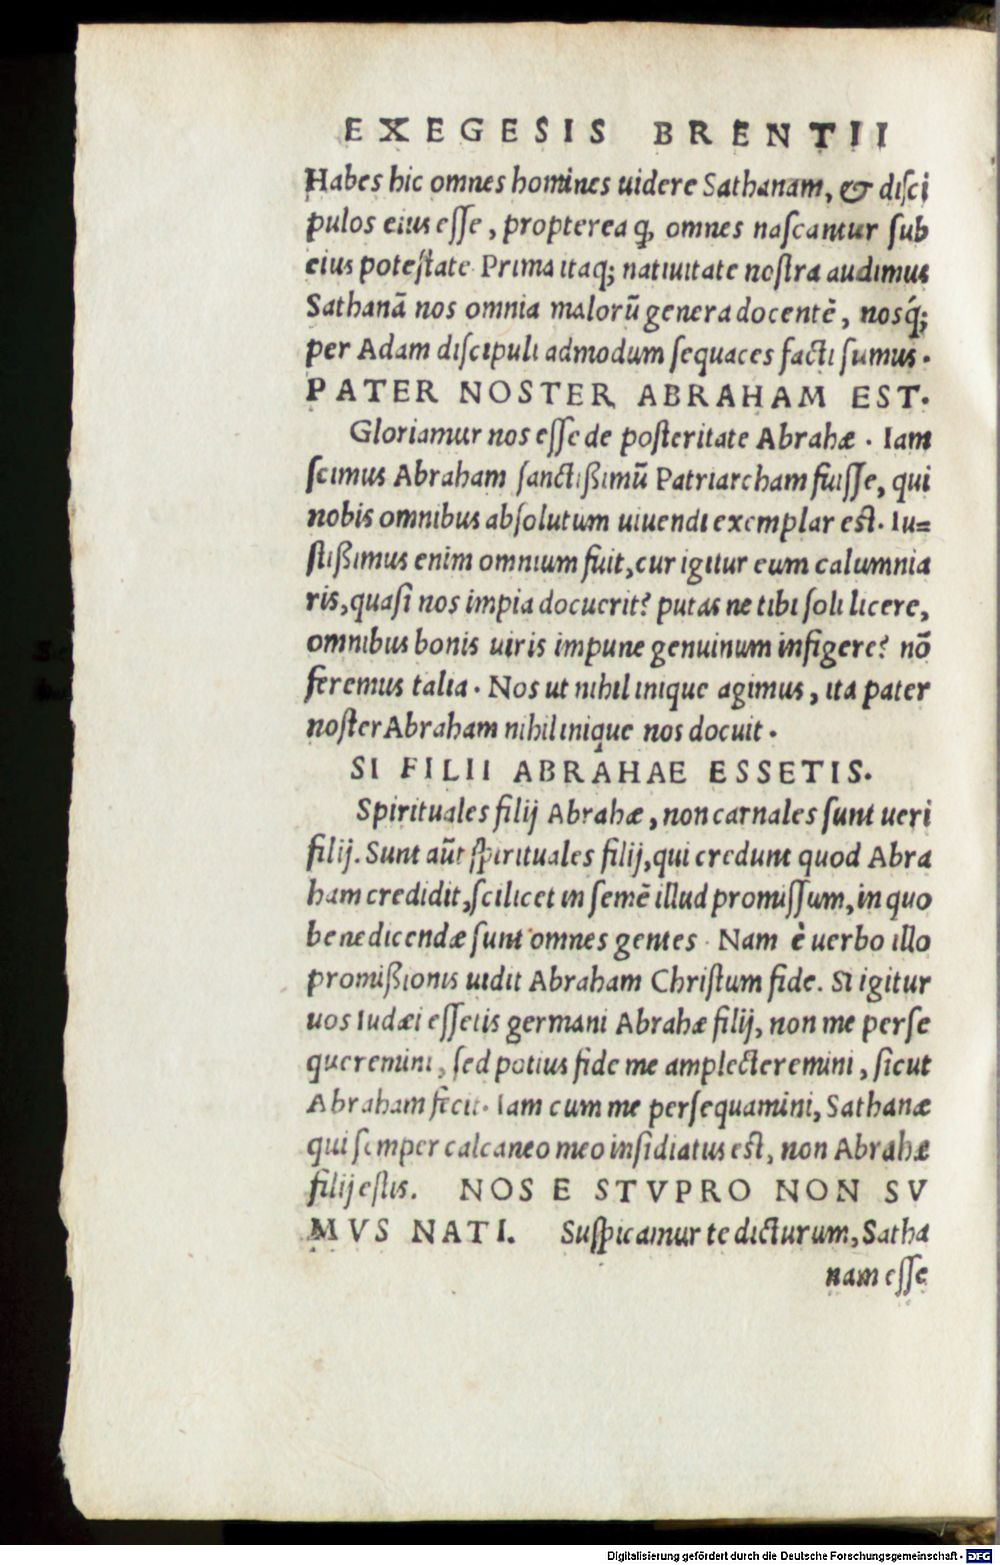 EXEGESIS BRENTII
Habes hic omnes homines uidere Sathanam, & disci
pulos eius esse, propterea q̃, omnes nascantur sub
eius potestate Prima itaq; natiuitate nostra audimus
Sathanã nos omnia malorũ genera docentẽ, nosq́;
per Adam discipuli admodum sequaces facti sumus.
PATER NOSTER ABRAHAM EST.
Gloriamur nos esse de posteritate Abrahæ. Iam
scimus Abraham sanctißimũ Patriarcham fuisse, qui
nobis omnibus absolutum uiuendi exemplar est. Iu=
stißimus enim omnium fuit, cur igitur eum calumnia
ris, quasi nos impia docuerit? putas ne tibi soli licere,
omnibus bonis uiris impune genuinum infigere? nõ
feremus talia. Nos ut nihil inique agimus, ita pater
noster Abraham nihil inique nos docuit.
SI FILII ABRAHAE ESSETIS.
Spirituales filij Abrahæ, non carnales sunt ueri
filij. Sunt aũt spirituales filij, qui credunt quod Abra
ham credidit, scilicet in semẽ illud promissum, in quo
benedicendæ sunt omnes gentes. Nam è uerbo illo
promißionis uidit Abraham Christum fide. Si igitur
uos Iudæi essetis germani Abrahæ filij, non me perse
queremini, sed potius fide me amplecteremini, sicut
Abraham fecit. Iam cum me persequamini, Sathanæ
qui semper calcaneo meo insidiatus est, non Abrahæ
filij estis. NOS E STVPRO NON SV
MVS NATI. Suspicamur te dicturum, Satha
nam esse
Digitalisierung gefördert durch die Deutsche Forschungsgemeinschaft - DFG